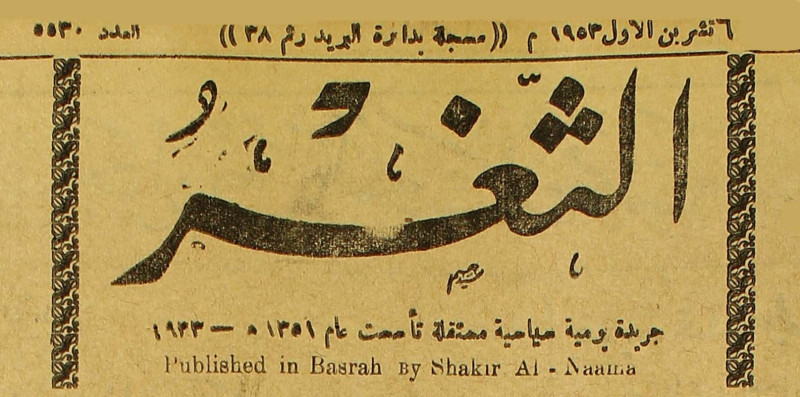 ٦ تشرين الاول ١٩٥٣ م ((مسجلة بدائرة البريد رقم ٣٨)) العدد ٥٥٣٠
الثَّغْرُ
جريدة يومية سياسية مستقلة تأسست عام ١٣٥١ ه — ١٩٣٣
Published in Basrah By Shakir Al - Naama